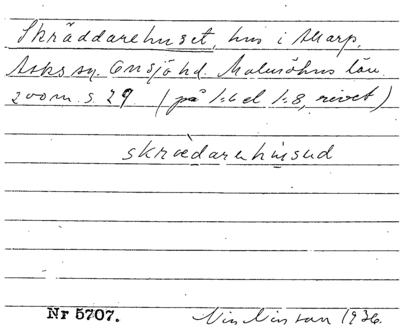 Skräddarehuset, hus i Allarp,
Asks sn. Onsjö hd. Malmöhus län.
200 m. S. 29 (på 1:6 el 1:8, rivet)
skrædarehused
Nr 5707. Nils Nilsson 1936.